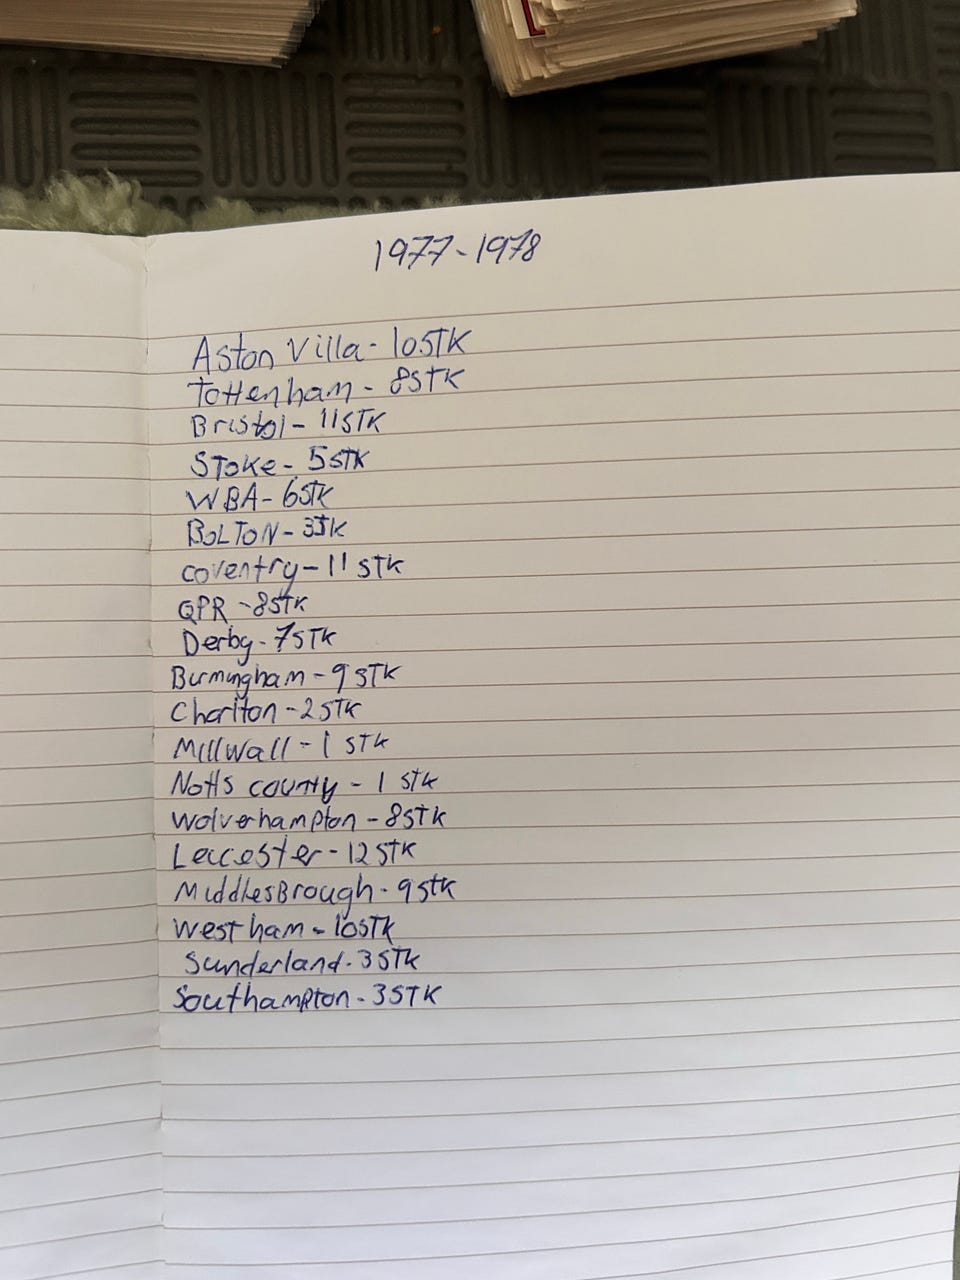 1977-1978
Aston Villa - 10STK
Tottenham - 8STK
Bristol - 11STK
Stoke - 5STK
WBA - 6STK
BOLTON - 3STK
Coventry - 11 STK
QPR - 8STK
Derby - 7STK
Birmingham - 9 STK
Charlton - 2STK
Millwall - 1 STK
Notts county - 1 STK
Wolverhampton - 8STK
Leicester - 12STK
MiddlesBrough - 9STK
West ham - 10STK
Sunderland - 3STK
Southampton - 3STK